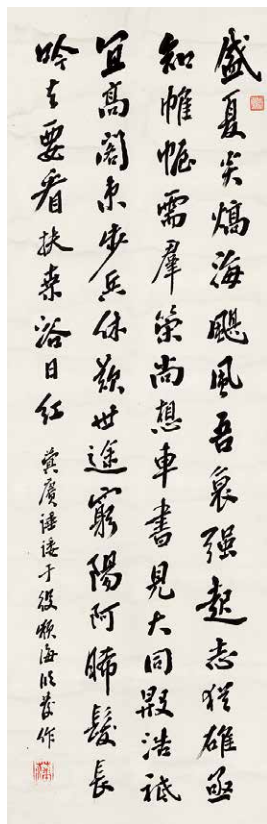 盛夏炎熇海颶風吾衰强起志猶雄亟
知帷幄需群策尚想車書見大同殷浩祗
宜高閣束步兵休歎世途窮陽阿晞髮長
吟去要看扶桑浴日紅
廣諈諉于役瀕海臨發作